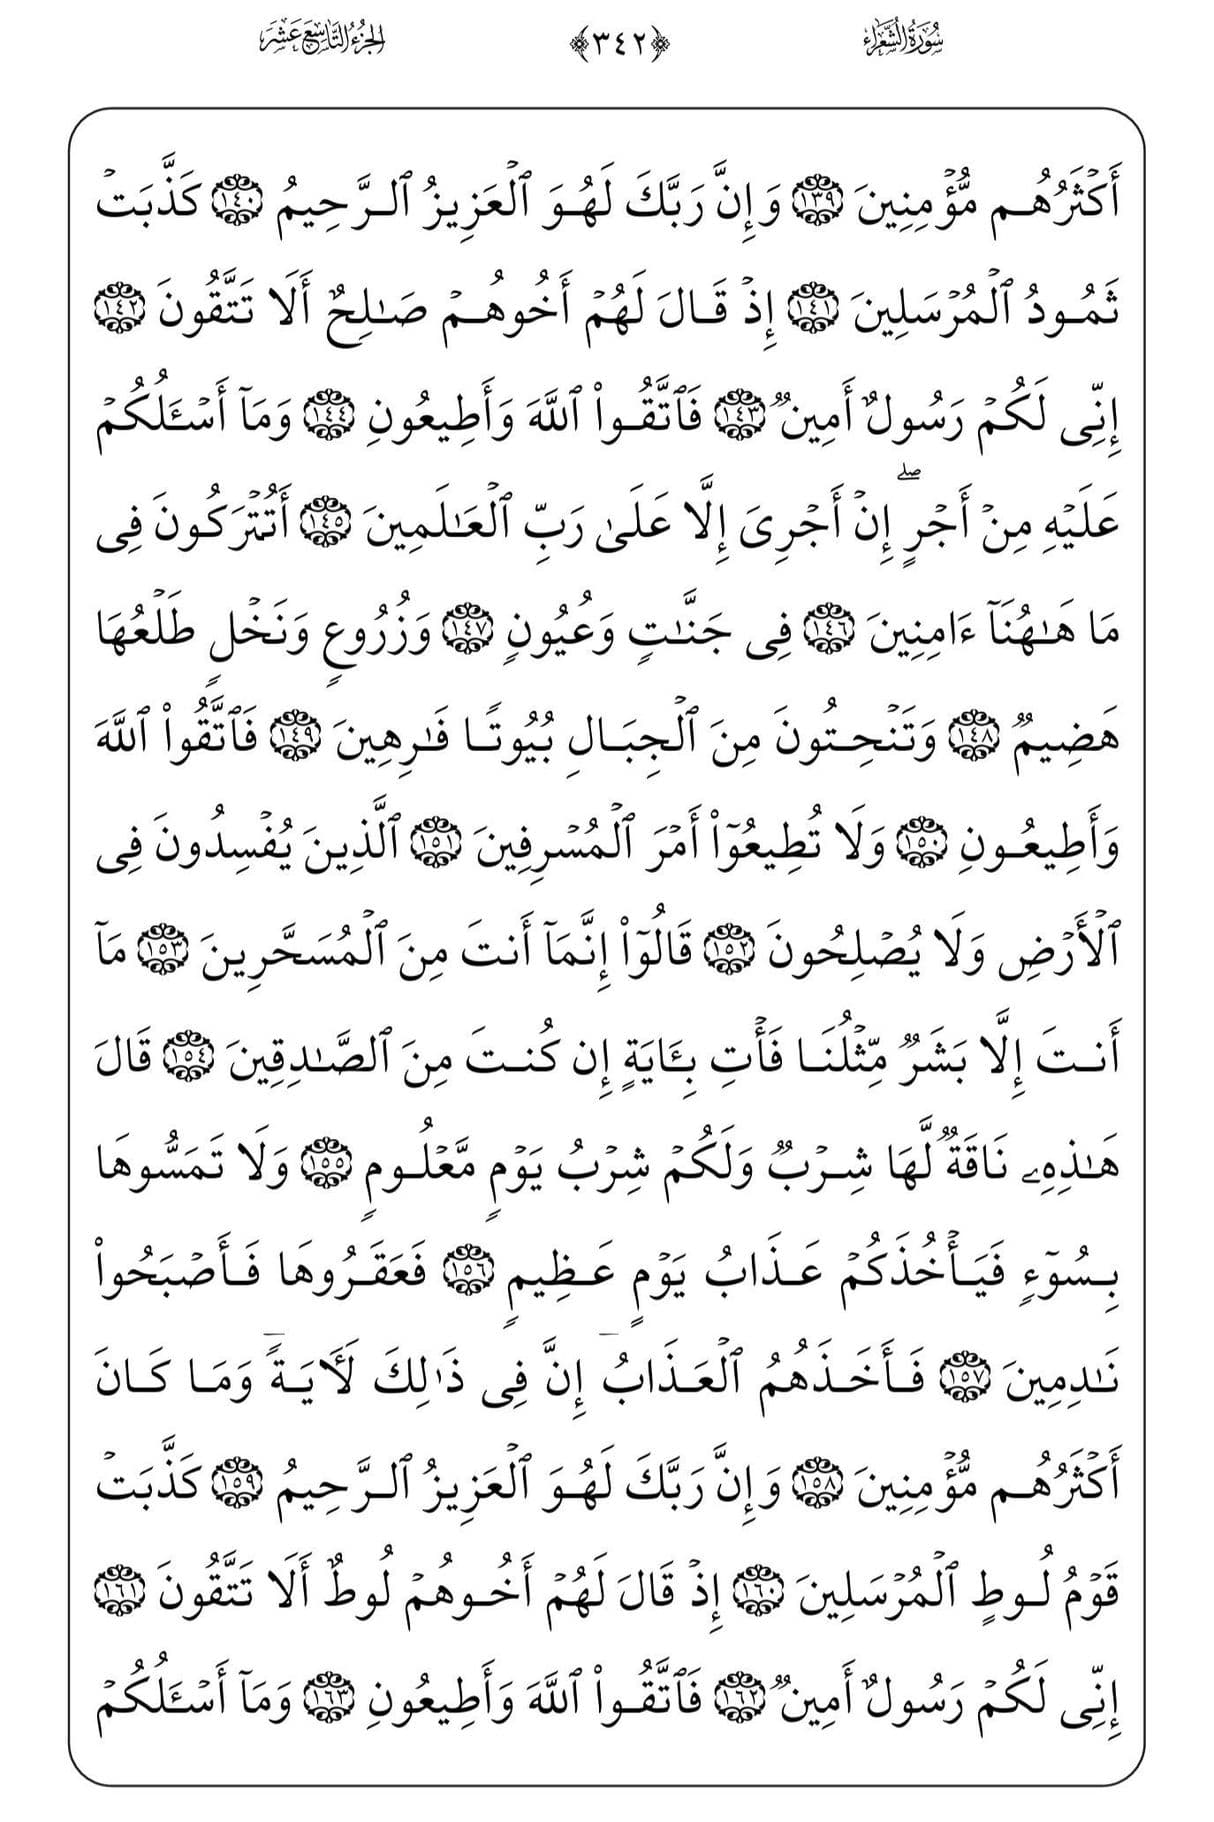 سُورَةُ الشُّعَرَاءِ ﴿٣٤٢﴾ الجُزْءُ التَّاسِعَ عَشَرَ
أَكۡثَرُهُم مُّؤۡمِنِينَ ١٣٩ وَإِنَّ رَبَّكَ لَهُوَ ٱلۡعَزِيزُ ٱلرَّحِيمُ ١٤٠ كَذَّبَتۡ
ثَمُودُ ٱلۡمُرۡسَلِينَ ١٤١ إِذۡ قَالَ لَهُمۡ أَخُوهُمۡ صَٰلِحٌ أَلَا تَتَّقُونَ ١٤٢
إِنِّى لَكُمۡ رَسُولٌ أَمِينٌ ١٤٣ فَٱتَّقُواْ ٱللَّهَ وَأَطِيعُونِ ١٤٤ وَمَآ أَسۡـَٔلُكُمۡ
عَلَيۡهِ مِنۡ أَجۡرٍۖ إِنۡ أَجۡرِىَ إِلَّا عَلَىٰ رَبِّ ٱلۡعَٰلَمِينَ ١٤٥ أَتُتۡرَكُونَ فِى
مَا هَٰهُنَآ ءَامِنِينَ ١٤٦ فِى جَنَّٰتٍ وَعُيُونٍ ١٤٧ وَزُرُوعٍ وَنَخۡلٍ طَلۡعُهَا
هَضِيمٌ ١٤٨ وَتَنۡحِتُونَ مِنَ ٱلۡجِبَالِ بُيُوتًا فَٰرِهِينَ ١٤٩ فَٱتَّقُواْ ٱللَّهَ
وَأَطِيعُونِ ١٥٠ وَلَا تُطِيعُوٓاْ أَمۡرَ ٱلۡمُسۡرِفِينَ ١٥١ ٱلَّذِينَ يُفۡسِدُونَ فِى
ٱلۡأَرۡضِ وَلَا يُصۡلِحُونَ ١٥٢ قَالُوٓاْ إِنَّمَآ أَنتَ مِنَ ٱلۡمُسَحَّرِينَ ١٥٣ مَآ
أَنتَ إِلَّا بَشَرٌ مِّثۡلُنَا فَأۡتِ بِـَٔايَةٍ إِن كُنتَ مِنَ ٱلصَّٰدِقِينَ ١٥٤ قَالَ
هَٰذِهِۦ نَاقَةٌ لَّهَا شِرۡبٌ وَلَكُمۡ شِرۡبُ يَوۡمٍ مَّعۡلُومٍ ١٥٥ وَلَا تَمَسُّوهَا
بِسُوٓءٍ فَيَأۡخُذَكُمۡ عَذَابُ يَوۡمٍ عَظِيمٍ ١٥٦ فَعَقَرُوهَا فَأَصۡبَحُواْ
نَٰدِمِينَ ١٥٧ فَأَخَذَهُمُ ٱلۡعَذَابُۚ إِنَّ فِى ذَٰلِكَ لَأٓيَةًۖ وَمَا كَانَ
أَكۡثَرُهُم مُّؤۡمِنِينَ ١٥٨ وَإِنَّ رَبَّكَ لَهُوَ ٱلۡعَزِيزُ ٱلرَّحِيمُ ١٥٩ كَذَّبَتۡ
قَوۡمُ لُوطٍ ٱلۡمُرۡسَلِينَ ١٦٠ إِذۡ قَالَ لَهُمۡ أَخُوهُمۡ لُوطٌ أَلَا تَتَّقُونَ ١٦١
إِنِّى لَكُمۡ رَسُولٌ أَمِينٌ ١٦٢ فَٱتَّقُواْ ٱللَّهَ وَأَطِيعُونِ ١٦٣ وَمَآ أَسۡـَٔلُكُمۡ